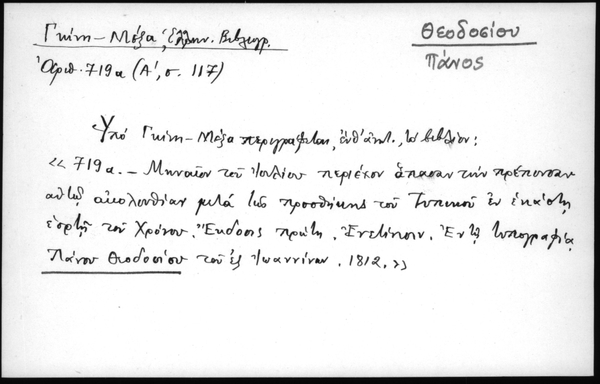 Γκίνη – Μέξα, Ἑλλην. Βιβλιογρ.
Ἀριθ. 719α (Α΄, σ. 117)
Θεοδοσίου
Πάνος
Ὑπό Γκίνη – Μέξα περιγράφεται, τὸ βιβλίον:
«719α. – Μηναῖον τοῦ Ἰουλίου περιέχον ἅπασαν τὴν πρέπουσαν
αὐτῷ ἀκολουθίαν μετά τῆς προσθήκης τοῦ Τυπικοῦ ἐν ἑκάστῃ
ἑορτῇ τοῦ Χρόνου. Ἔκδοσις πρώτη. Ἐνετίησιν. Ἐν τῇ τυπογραφίᾳ
Πάνου Θεοδοσίου τοῦ ἐξ Ἰωαννίνων. 1812.»